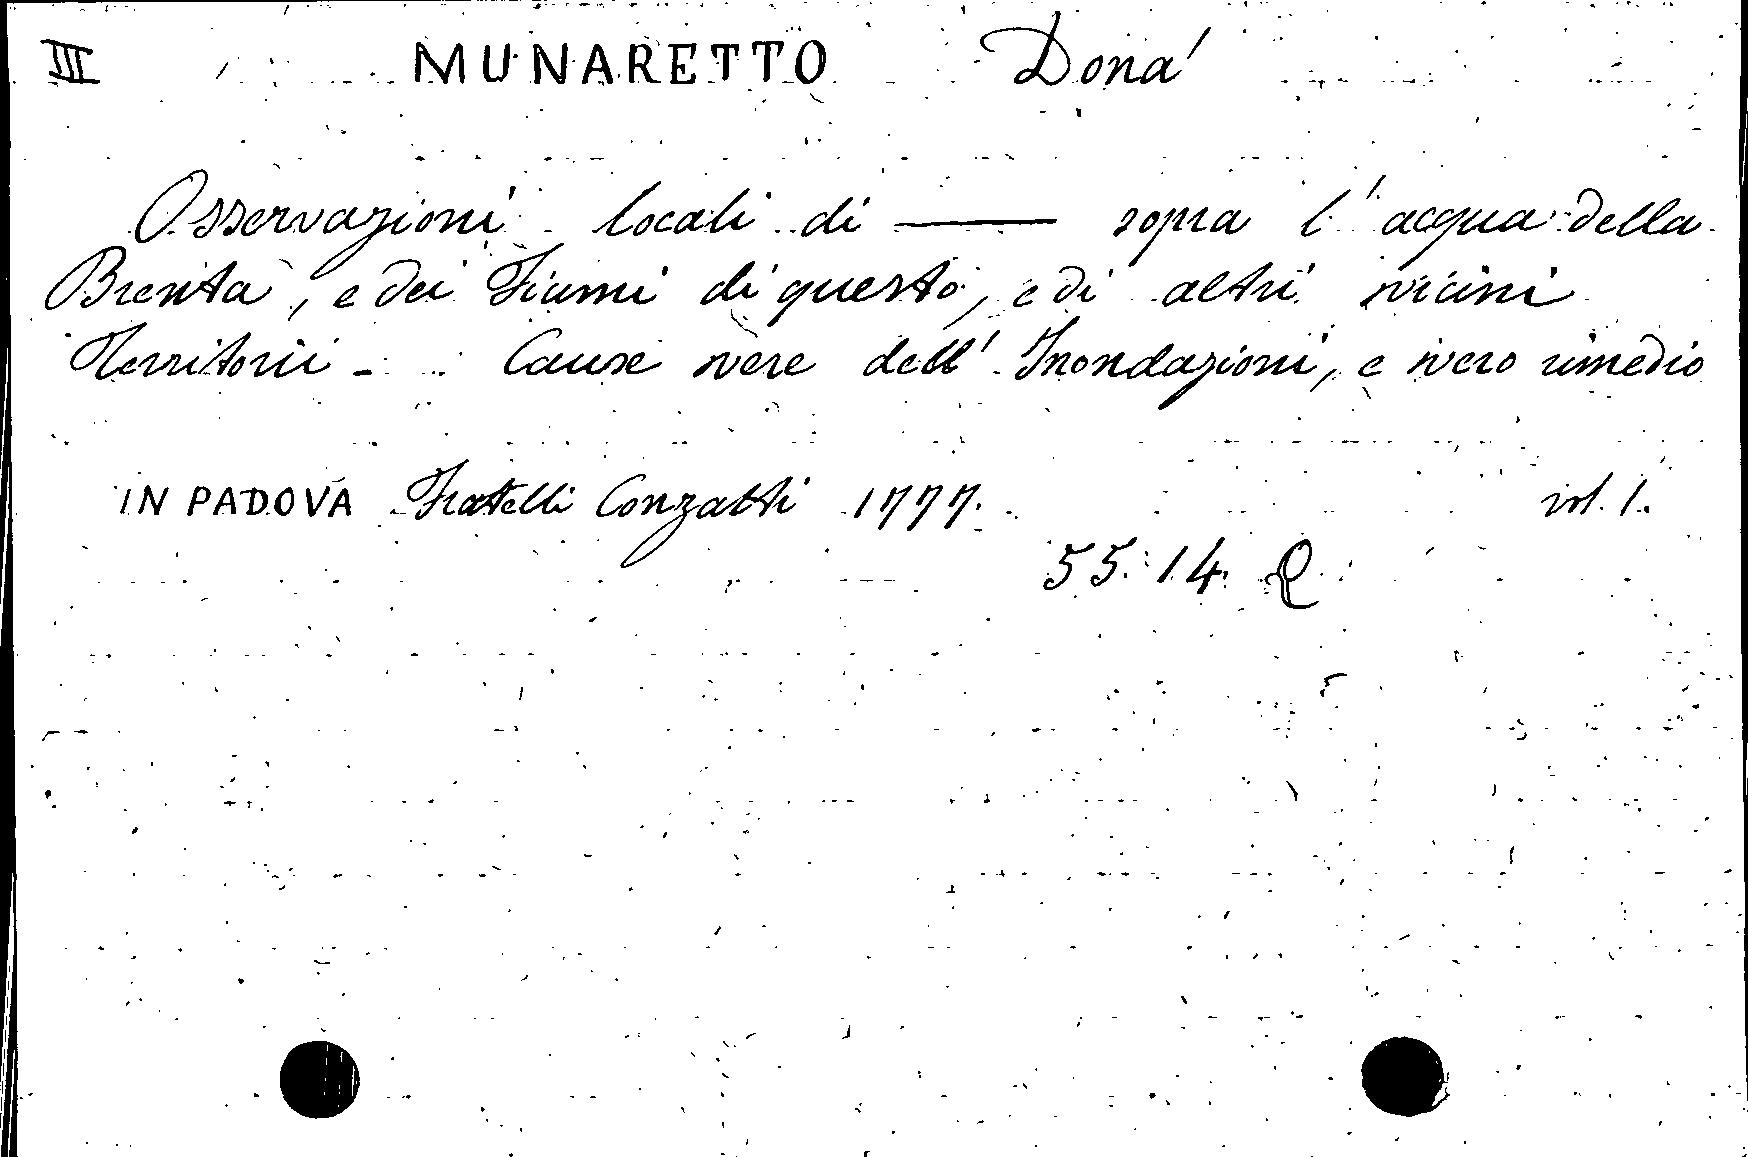 III MUNARETTO Dona'
Osservazioni locali di —— sopra l'acqua della
Brenta, e dei Fiumi di questo, e di altri vicini
Territorii - Cause vere dell' Inondazioni, e vero rimedio
IN PADOVA Fratelli Conzatti 1777. vol. 1.
55. 14. Q